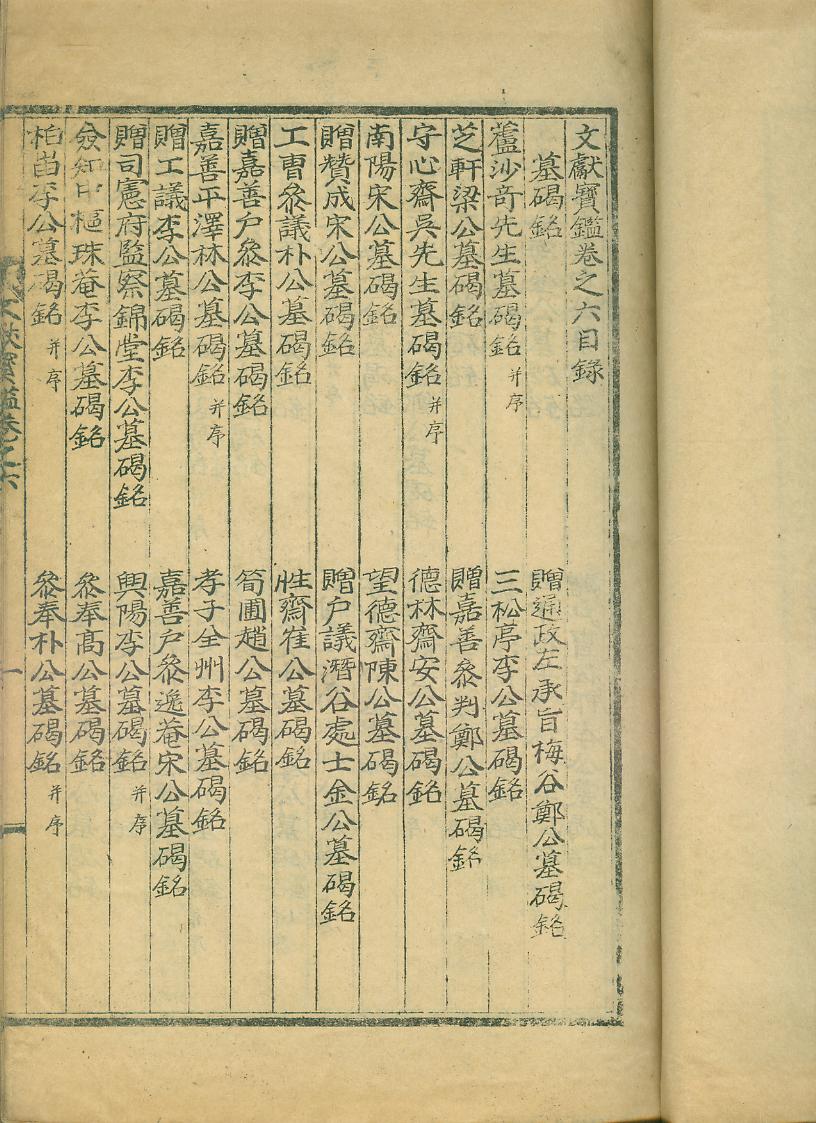 文獻寶鑑卷之六目錄
墓碣銘
贈通政左承旨梅谷鄭公墓碣銘
蘆沙奇先生墓碣銘 并序
三松亭李公墓碣銘
芝軒梁公墓碣銘
贈嘉善叅判鄭公墓碣銘
守心齋吳先生墓碣銘 并序
德林齋安公墓碣銘
南陽宋公墓碣銘
望德齋陳公墓碣銘
贈贊成宋公墓碣銘
贈户議潛谷處士金公墓碣銘
工曹叅議朴公墓碣銘
性齋崔公墓碣銘
贈嘉善户叅李公墓碣銘
筍圃趙公墓碣銘
嘉善平澤林公墓碣銘 并序
孝子全州李公墓碣銘
贈工議李公墓碣銘
嘉善户叅逸菴宋公墓碣銘
贈司憲府監察錦堂李公墓碣銘
興陽李公墓碣銘 并序
僉知中樞珠菴李公墓碣銘
叅奉高公墓碣銘
李公墓碣銘 并序
叅奉朴公墓碣銘 并序
文獻寶鑑卷之六
一